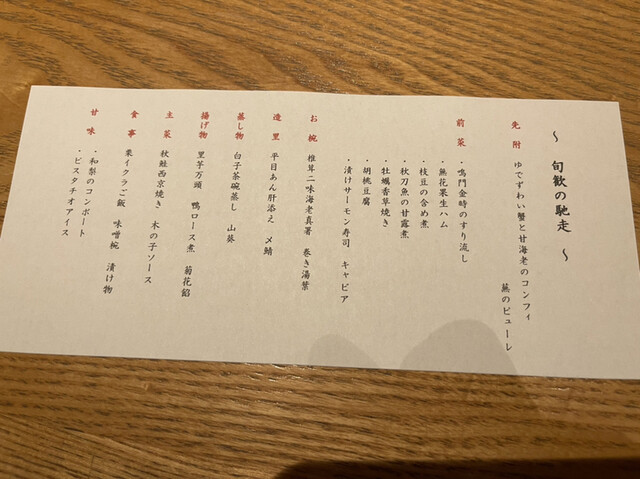 ～ 旬歓の馳走 ～
先附 ゆでずわい蟹と甘海老のコンフィ
蕪のピューレ
前菜 ・鳴門金時のすり流し
・無花果生ハム
・枝豆の含め煮
・秋刀魚の甘露煮
・牡蠣香草焼き
・胡桃豆腐
・漬けサーモン寿司 キャビア
お椀 椎茸二味海老真薯 巻き湯葉
造里 平目あん肝添え 〆鯖
蒸し物 白子茶碗蒸し 山葵
揚げ物 里芋万頭 鴨ロース煮 菊花餡
主菜 秋鮭西京焼き 木の子ソース
食事 栗イクラご飯 味噌椀 漬け物
甘味 ・和梨のコンポート
・ピスタチオアイス